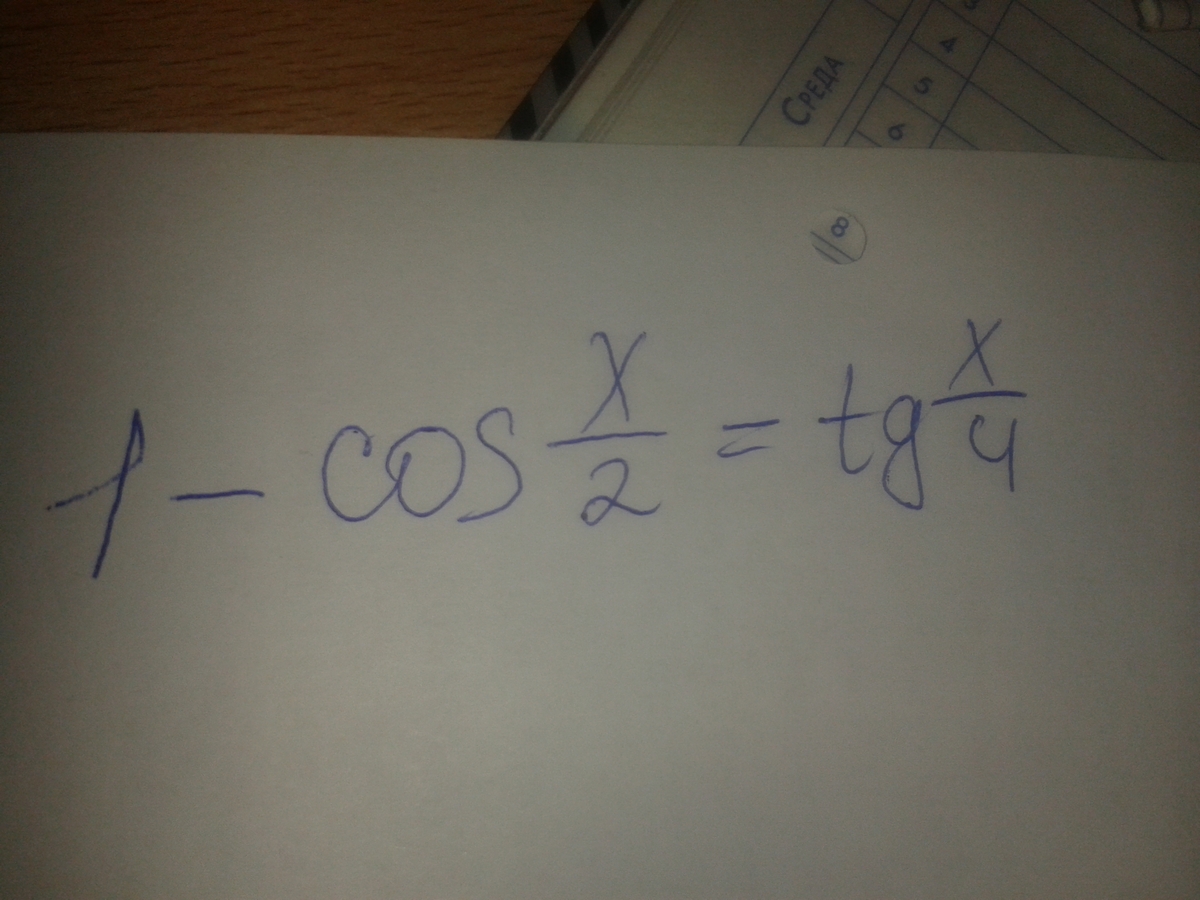 СРЕДА
3
4
5
6
8
1 - cos x/2 = tg x/4